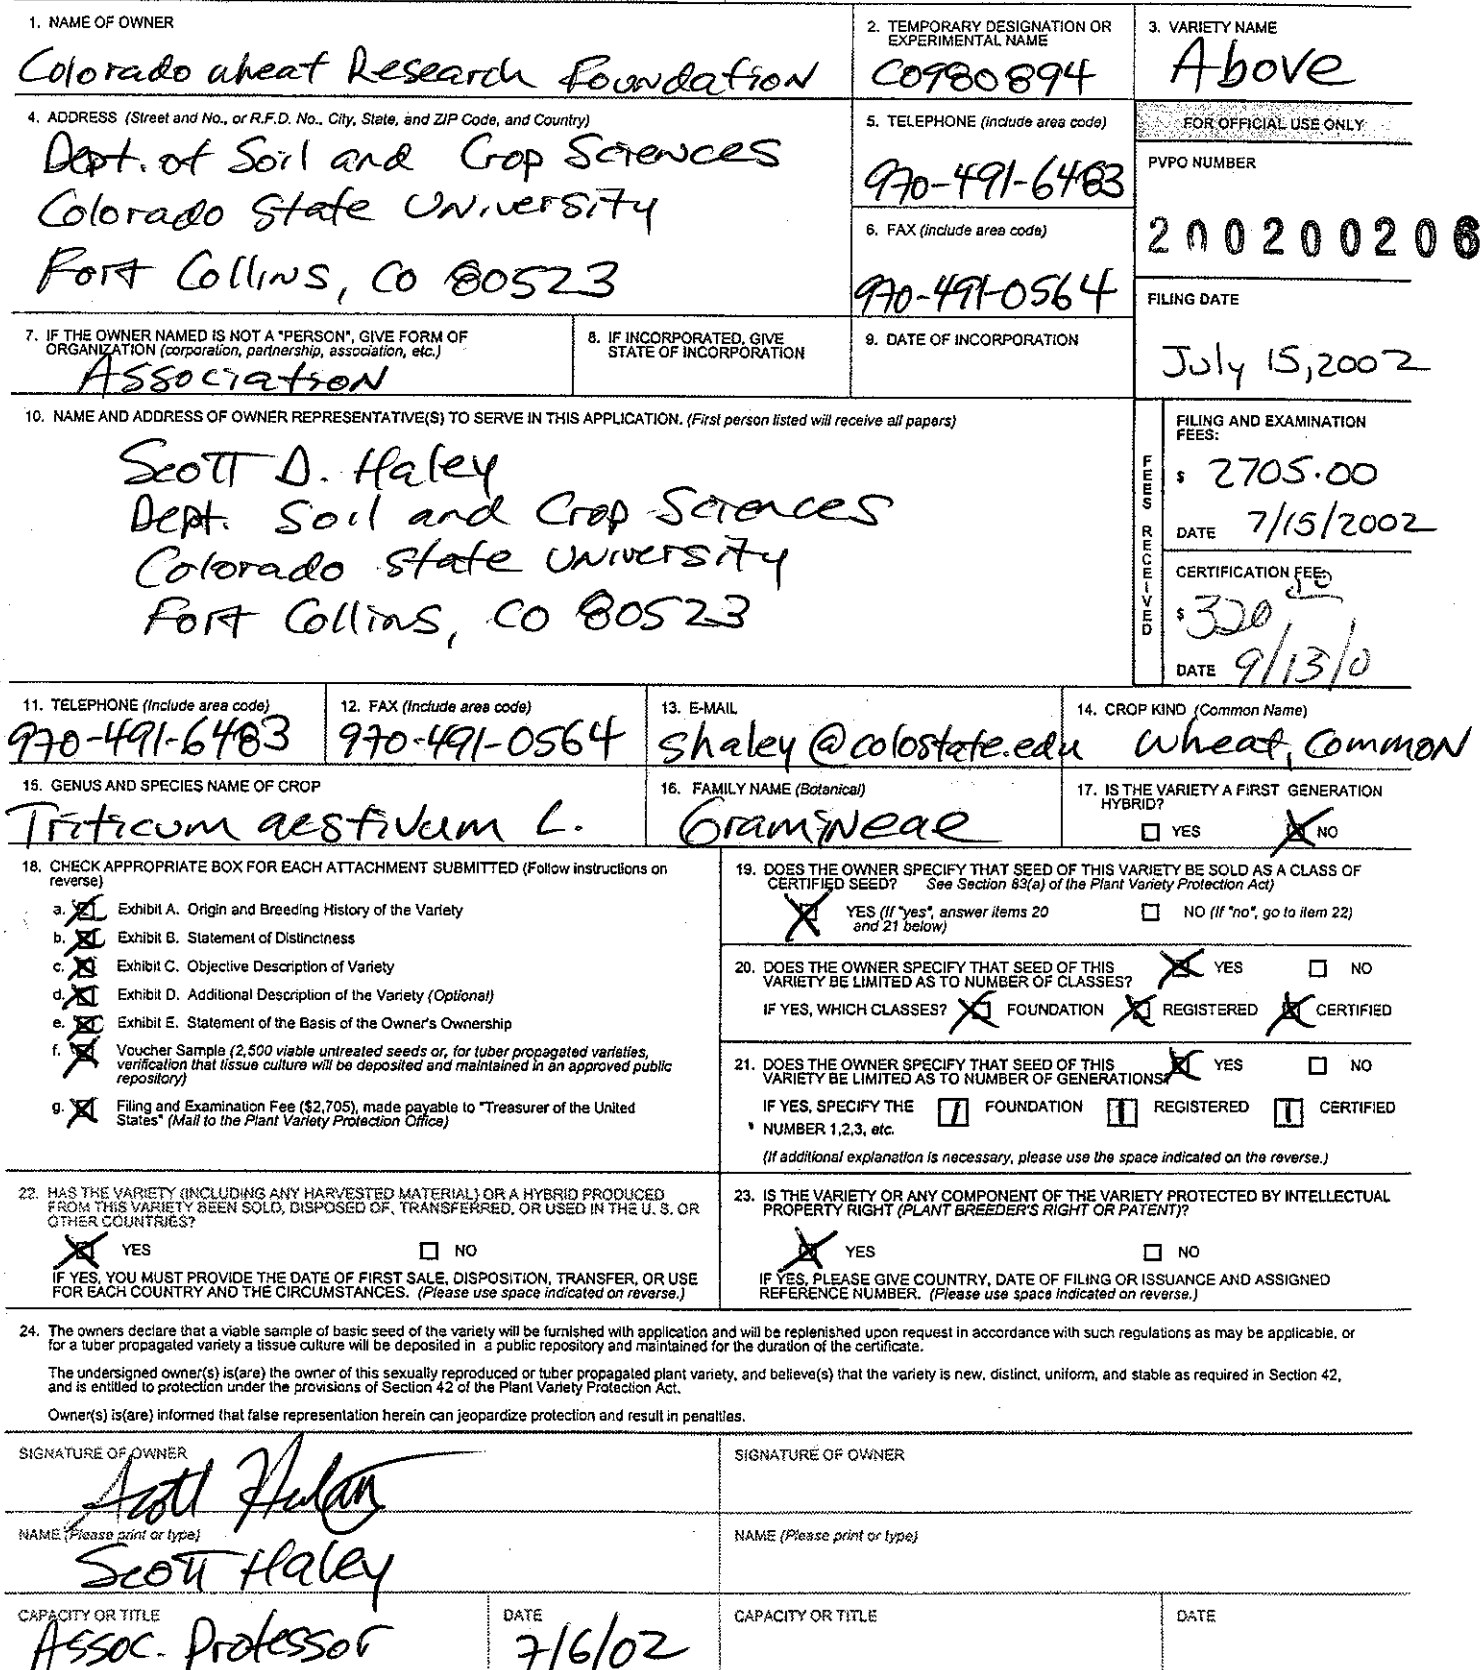 1. NAME OF OWNER
Colorado Wheat Research Foundation
2. TEMPORARY DESIGNATION OR
EXPERIMENTAL NAME
CO980894
3. VARIETY NAME
Above
4. ADDRESS (Street and No., or R.F.D. No., City, State, and ZIP Code, and Country)
Dept. of Soil and Crop Sciences
Colorado State University
Fort Collins, CO 80523
5. TELEPHONE (include area code)
970-491-6483
6. FAX (include area code)
970-491-0564
FOR OFFICIAL USE ONLY
PVPO NUMBER
200200206
FILING DATE
July 15, 2002
7. IF THE OWNER NAMED IS NOT A "PERSON", GIVE FORM OF
ORGANIZATION (corporation, partnership, association, etc.)
Association
8. IF INCORPORATED, GIVE
STATE OF INCORPORATION
9. DATE OF INCORPORATION
10. NAME AND ADDRESS OF OWNER REPRESENTATIVE(S) TO SERVE IN THIS APPLICATION. (First person listed will receive all papers)
Scott D. Haley
Dept. Soil and Crop Sciences
Colorado State University
Fort Collins, CO 80523
FEES RECEIVED
FILING AND EXAMINATION
FEES:
$ 2705.00
DATE 7/15/2002
CERTIFICATION FEE:
$ 320
DATE 9/13/0
11. TELEPHONE (Include area code)
970-491-6483
12. FAX (Include area code)
970-491-0564
13. E-MAIL
shaley@colostate.edu
14. CROP KIND (Common Name)
Wheat, Common
15. GENUS AND SPECIES NAME OF CROP
Triticum aestivum L.
16. FAMILY NAME (Botanical)
Gramineae
17. IS THE VARIETY A FIRST GENERATION
HYBRID?
YES NO
18. CHECK APPROPRIATE BOX FOR EACH ATTACHMENT SUBMITTED (Follow instructions on
reverse)
a. Exhibit A. Origin and Breeding History of the Variety
b. Exhibit B. Statement of Distinctness
c. Exhibit C. Objective Description of Variety
d. Exhibit D. Additional Description of the Variety (Optional)
e. Exhibit E. Statement of the Basis of the Owner's Ownership
f. Voucher Sample (2,500 viable untreated seeds or, for tuber propagated varieties,
verification that tissue culture will be deposited and maintained in an approved public
repository)
g. Filing and Examination Fee ($2,705), made payable to "Treasurer of the United
States" (Mail to the Plant Variety Protection Office)
19. DOES THE OWNER SPECIFY THAT SEED OF THIS VARIETY BE SOLD AS A CLASS OF
CERTIFIED SEED? See Section 83(a) of the Plant Variety Protection Act)
YES (If "yes", answer items 20
and 21 below)
NO (If "no", go to item 22)
20. DOES THE OWNER SPECIFY THAT SEED OF THIS
VARIETY BE LIMITED AS TO NUMBER OF CLASSES?
YES NO
IF YES, WHICH CLASSES? FOUNDATION REGISTERED CERTIFIED
21. DOES THE OWNER SPECIFY THAT SEED OF THIS
VARIETY BE LIMITED AS TO NUMBER OF GENERATIONS?
YES NO
IF YES, SPECIFY THE
NUMBER 1,2,3, etc.
1 FOUNDATION 1 REGISTERED 1 CERTIFIED
(If additional explanation is necessary, please use the space indicated on the reverse.)
22. HAS THE VARIETY (INCLUDING ANY HARVESTED MATERIAL) OR A HYBRID PRODUCED
FROM THIS VARIETY BEEN SOLD, DISPOSED OF, TRANSFERRED, OR USED IN THE U. S. OR
OTHER COUNTRIES?
YES NO
IF YES, YOU MUST PROVIDE THE DATE OF FIRST SALE, DISPOSITION, TRANSFER, OR USE
FOR EACH COUNTRY AND THE CIRCUMSTANCES. (Please use space indicated on reverse.)
23. IS THE VARIETY OR ANY COMPONENT OF THE VARIETY PROTECTED BY INTELLECTUAL
PROPERTY RIGHT (PLANT BREEDER'S RIGHT OR PATENT)?
YES NO
IF YES, PLEASE GIVE COUNTRY, DATE OF FILING OR ISSUANCE AND ASSIGNED
REFERENCE NUMBER. (Please use space indicated on reverse.)
24. The owners declare that a viable sample of basic seed of the variety will be furnished with application and will be replenished upon request in accordance with such regulations as may be applicable, or
for a tuber propagated variety a tissue culture will be deposited in a public repository and maintained for the duration of the certificate.
The undersigned owner(s) is(are) the owner of this sexually reproduced or tuber propagated plant variety, and believe(s) that the variety is new, distinct, uniform, and stable as required in Section 42,
and is entitled to protection under the provisions of Section 42 of the Plant Variety Protection Act.
Owner(s) is(are) informed that false representation herein can jeopardize protection and result in penalties.
SIGNATURE OF OWNER
Scott Haley
SIGNATURE OF OWNER
NAME (Please print or type)
Scott Haley
NAME (Please print or type)
CAPACITY OR TITLE
Assoc. Professor
DATE
7/6/02
CAPACITY OR TITLE
DATE